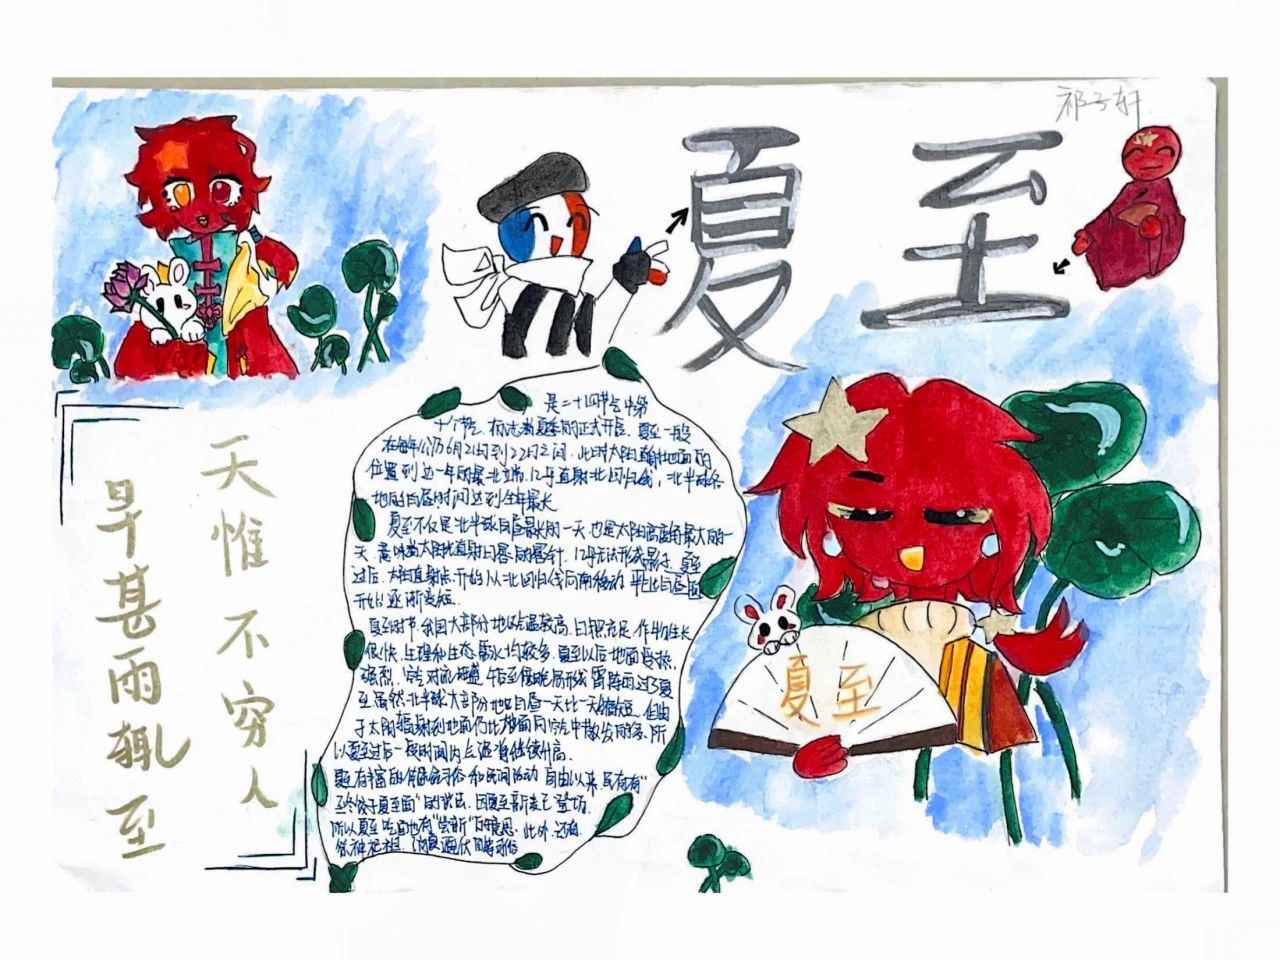 祁子轩
夏至
天惟不穷人
旱甚雨辄至
是二十四节气中第
十个节气.标志着夏季的正式开启.夏至一般
在每年公历6月21日到22日之间.此时太阳直射地面的
位置到达一年的最北端.几乎直射北回归线,北半球各
地的白昼时间达到全年最长
夏至不仅是北半球白昼最长的一天 也是太阳高度角最大的一
天.意味着太阳光直射日晷的晷针.几乎无法形成影子.夏至
过后.太阳直射点开始从北回归线向南移动 北半球白昼
开始逐渐变短.
夏至时节.我国大部分地区气温较高.日照充足.作物生长
很快.生理和生态需水均较多.夏至以后地面受热
强烈.空气对流旺盛.午后至傍晚易形成雷阵雨.过了夏
至虽然北半球大部分地区白昼一天比一天缩短.但由
于太阳辐射到地面仍比地面向空气中散发的多.所
以夏至过后一段时间内气温将继续升高.
夏至有丰富的 习俗和民间活动 自古以来.民间有"
冬至饺子夏至面"的说法.因夏至新麦已登场.
所以夏至吃面也有"尝新"的意思.此外.还有
祭神祀祖. 消夏避伏 等习俗
夏至